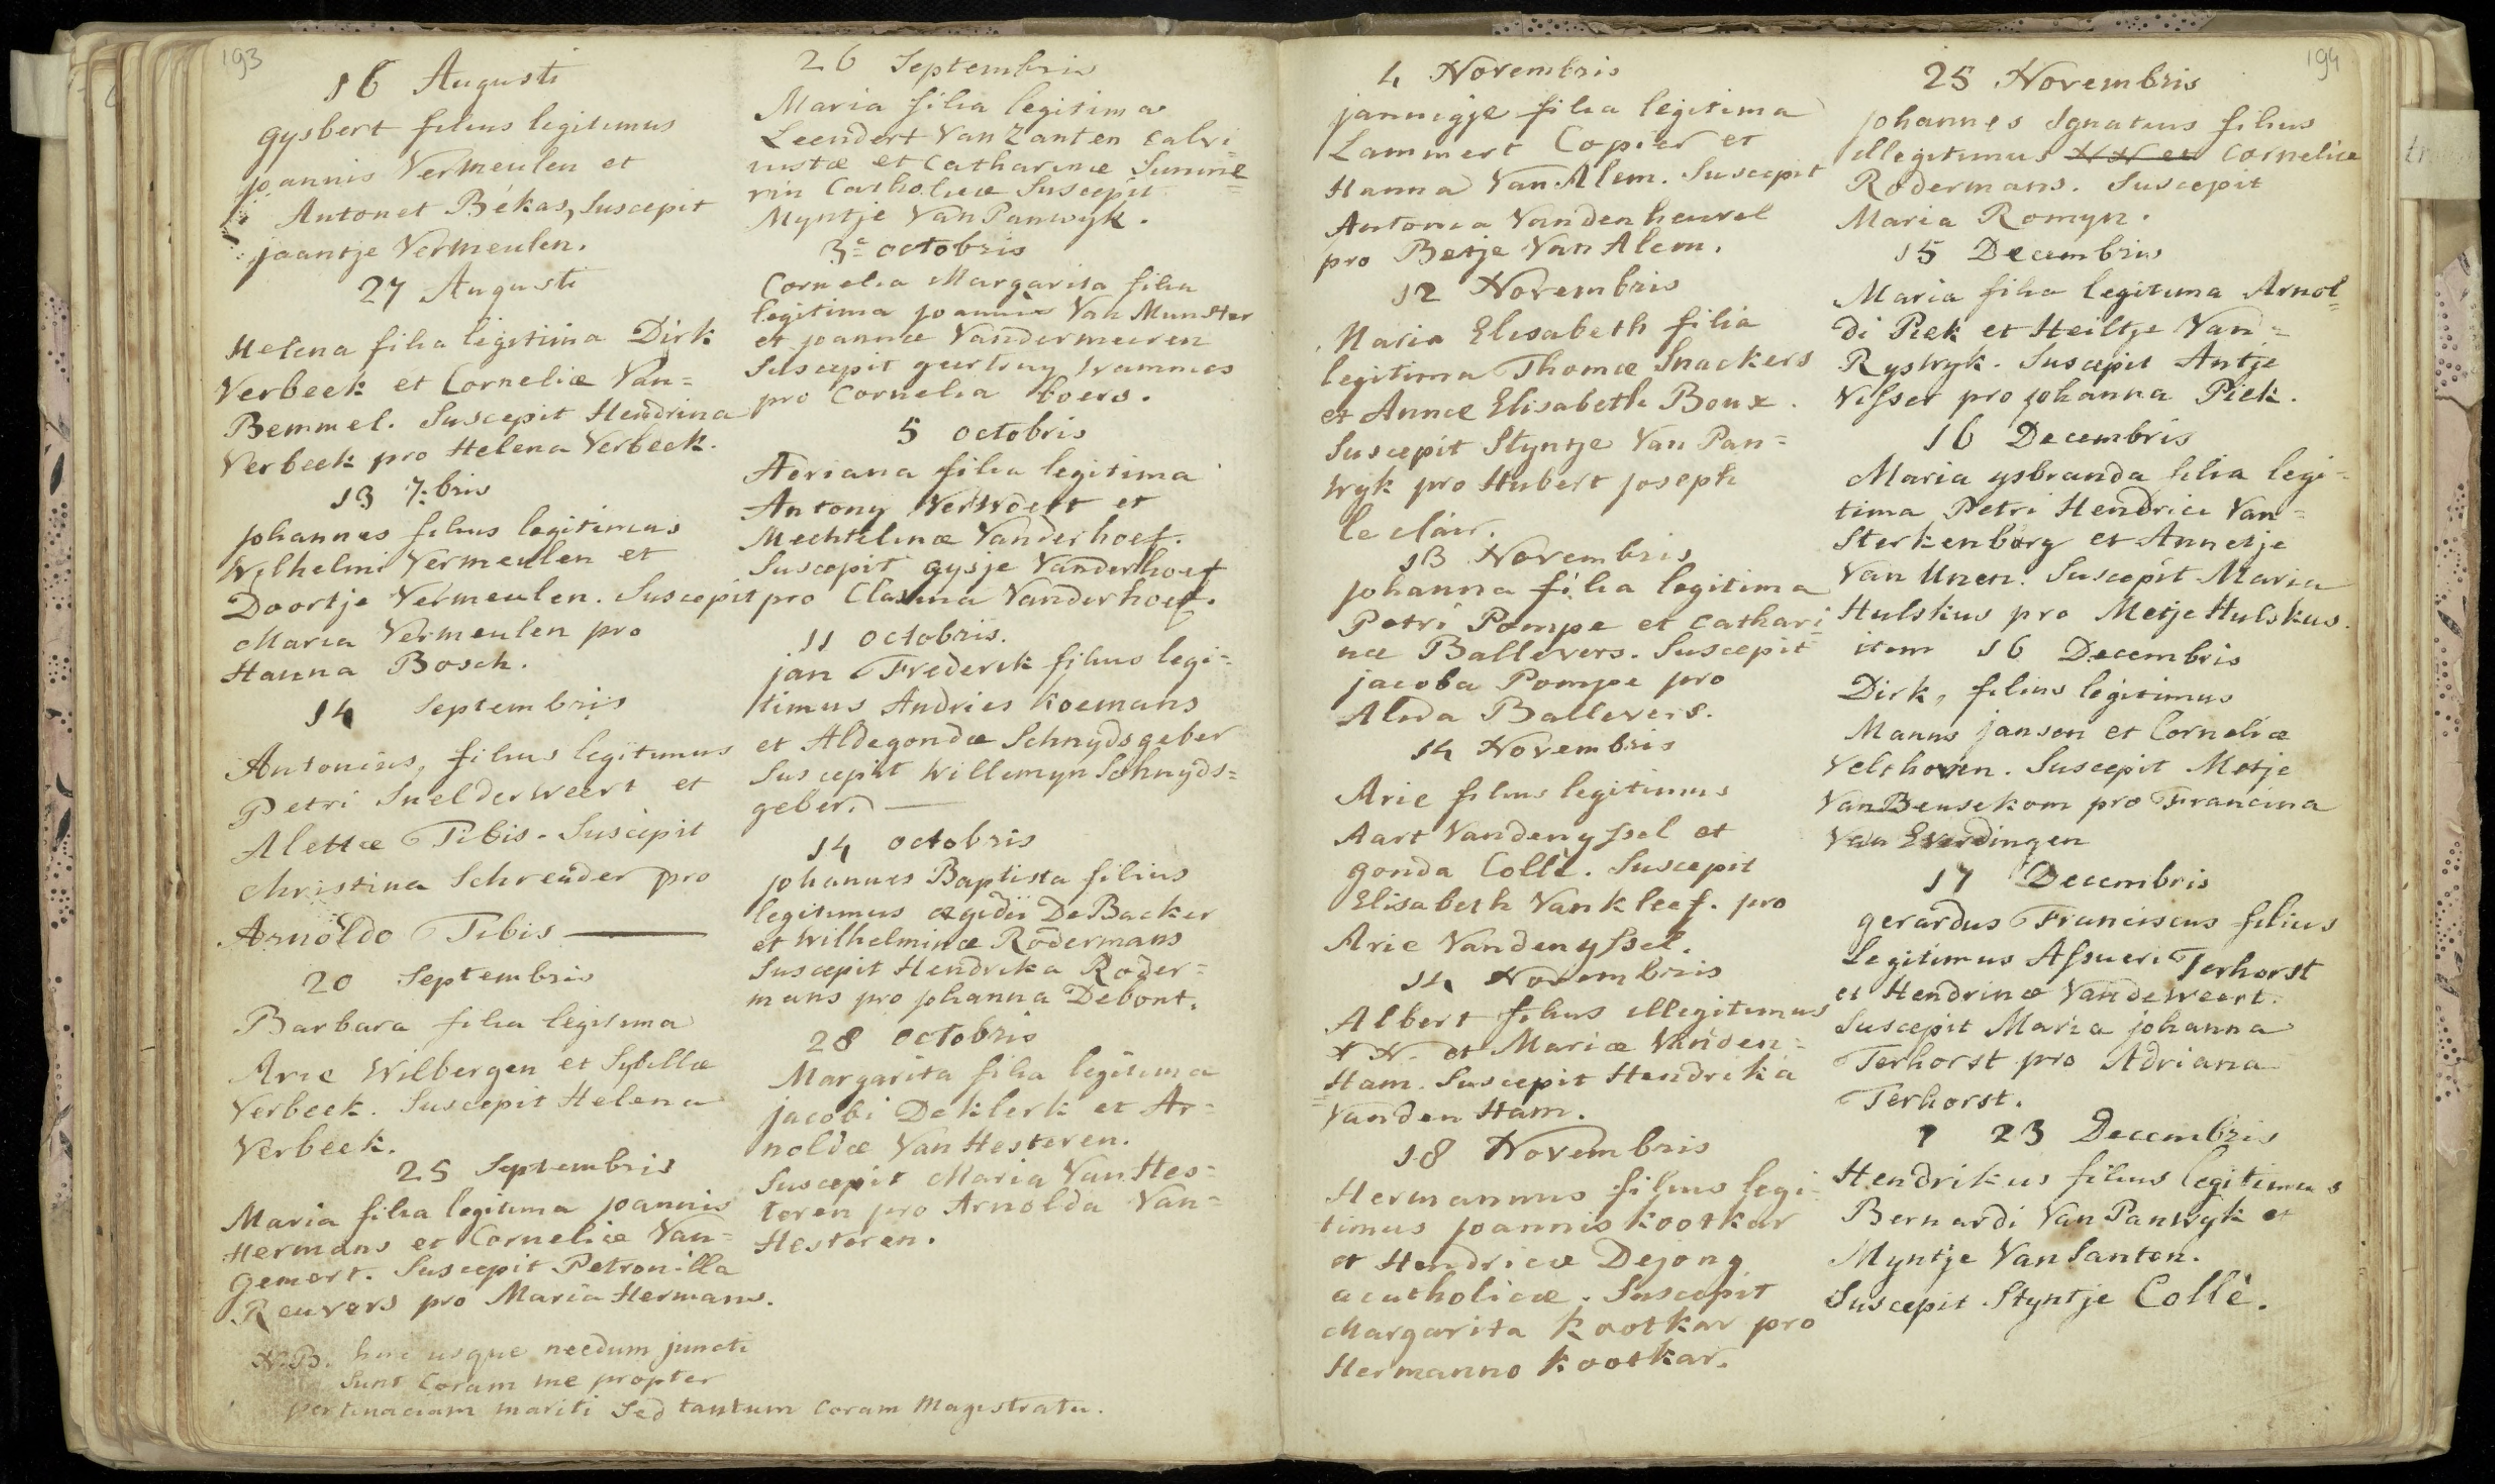 193
16 Augusti
gysbert filius legitimus
joannis Vermeulen et
Antonet Békas, Suscepit
jaantje Vermeulen.
27 Augusti
Helena filia legitima Dirk
Verbeek et Corneliæ Van=
Bemmel. Suscepit Hendrina
Verbeek pro Helena Verbeek.
13 7:bris
johannes filius legitimus
Wilhelmi Vermeulen et
Doortje Vermeulen. Suscepit
Maria Vermeulen pro
Hanna Bosch.
14 Septembris
Antonius, filius legitimus
Petri Snelderweert et
Alettæ Tibis. Suscepit
Christina Schreuder pro
Arnoldo Tibis
20 Septembris
Barbara filia legitima
Arie Wilbergen et Sybillæ
Verbeek. Suscepit Helena
Verbeek.
25 Septembris
Maria filia legitima joannis
Hermans et Corneliæ Van=
Gemert. Suscepit Petronilla
Reuvers pro Maria Hermans.
N.B. huc usque necdum juncti
sunt coram me propter
pertinaciam mariti sed tantum coram Magistratu.
26 Septembris
Maria filia legitima
Leendert Van Zanten calvi=
nistæ et Catharinæ Summe=
rin Catholicæ Suscepit
Myntje Van Panwyk.
3ª octobris
Cornelia Margarita filia
legitima joannis Van Munster
et joannæ Vandermeeren
Suscepit geertruy Wammes
pro Cornelia boers.
5 octobris
Adriana filia legitima
Antony Verwoert et
Mechtelinæ Vanderhoef.
Suscepit gysje Vanderhoef
pro Clasina Vanderhoef.
11 octobris.
jan Frederik filius legi=
timus Andries Koemans
et Aldegondæ Schnydsgeber
Suscepit Willemyn Schnyds=
geber.
14 octobris
johannes Baptista filius
legitimus ægidii De Backer
et Wilhelminæ Rodermans
Suscepit Hendrika Roder=
mans pro johanna Debont.
28 octobris
Margarita filia legitima
jacobi Deklerk et Ar=
noldæ Van Hesteren.
Suscepit Maria Van Hes=
teren pro Arnolda Van=
Hesteren.
4 Novembris
jannigje filia legitima
Lammert Copier et
Hanna Van Alem. Suscepit
Antonia Vandenheuvel
pro Betje Van Alem.
12 Novembris
Maria Elisabeth filia
legitima Thomæ Snackers
et Annæ Elisabeth Boux.
Suscepit Styntje Van Pan=
wyk pro Hubert joseph
le clair.
13 Novembris
johanna filia legitima
Petri Pompe et cathari=
næ Ballevers. Suscepit
jacoba Pompe pro
Alida Ballevers.
14 Novembris
Arie filius legitimus
Aart Vandenyssel et
gonda Collé. Suscepit
Elisabeth Van kleef. pro
Arie Vandenyssel.
14 Novembris
Albert filius illegitimus
N N. et Mariæ Vanden=
Ham. Suscepit Hendrika
Vanden Ham.
18 Novembris
Hermannus filius legi=
timus joannis kootkar
et Hendricæ Dejong
acatholicæ. Suscepit
Margarita kootkar pro
Hermanno kootkar.
194
25 Novembris
johannes Ignatius filius
illegitimus N N et Corneliæ
Rodermans. Suscepit
Maria Romyn.
15 Decembris
Maria filia legitima Arnol=
di Piek et Heiltje Van=
Ryswyk. Suscepit Antje
Visser pro johanna Piek.
16 Decembris
Maria ysbranda filia legi=
tima Petri Hendrici Van=
Sterkenborg et Annetje
Van Unen. Suscepit Maria
Hulskus pro Metje Hulskus.
item 16 Decembris
Dirk, filius legitimus
Manus janson et Corneliæ
Velthoven. Suscepit Metje
Van Beusekom pro Francina
Van Everdingen
17 Decembris
gerardus Franciscus filius
Legitimus Assueri Terhorst
et Hendrinæ Vandeweert.
Suscepit Maria johanna
Terhorst pro Adriana
Terhorst.
23 Decembris
Hendrikus filius legitimus
Bernardi Van Panwyk et
Myntje Van Santen.
Suscepit Styntje Collè.